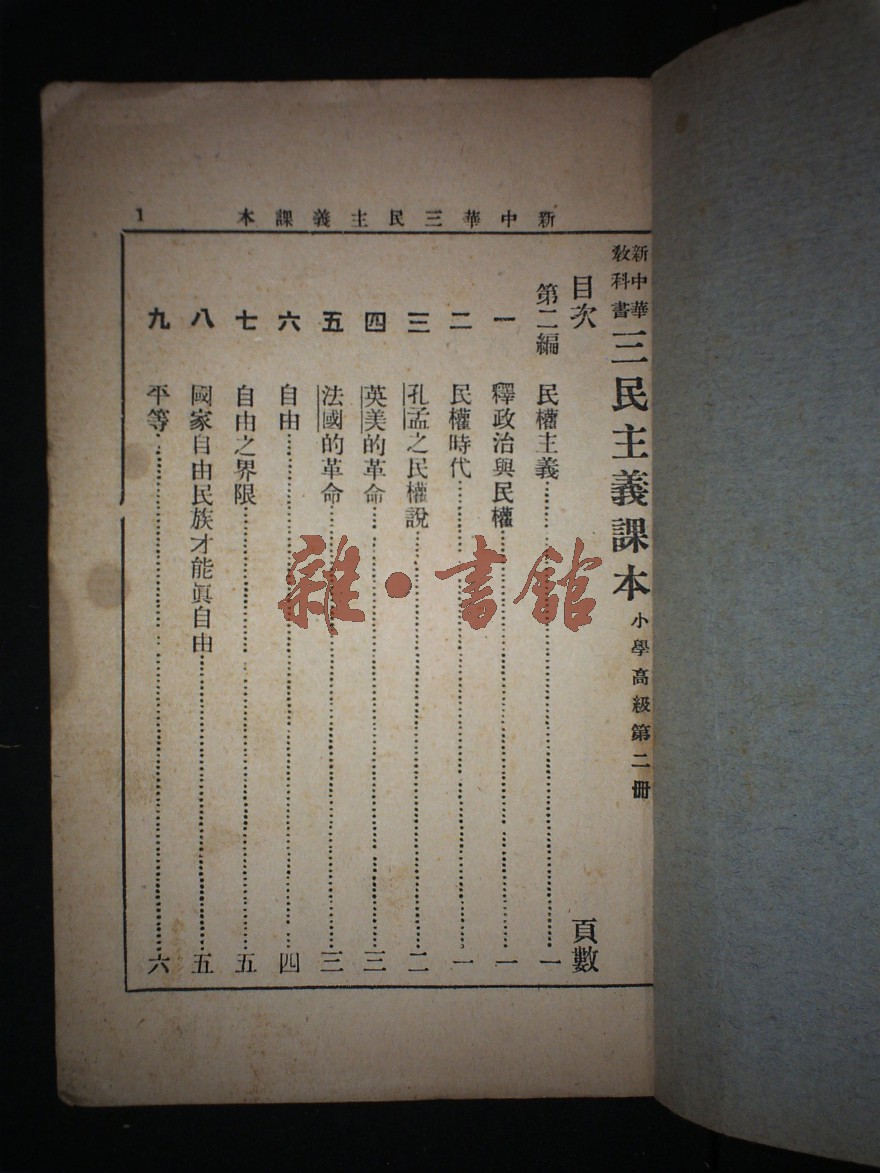 新中華三民主義課本
1
新中華
教科書
三民主義課本 小學高級第二冊
目次 頁數
第二編 民權主義……一
一 釋政治與民權……一
二 民權時代……一
三 孔孟之民權說……二
四 英美的革命……三
五 法國的革命……三
六 自由……四
七 自由之界限……五
八 國家自由民族才能眞自由……五
九 平等……六
雜·書館